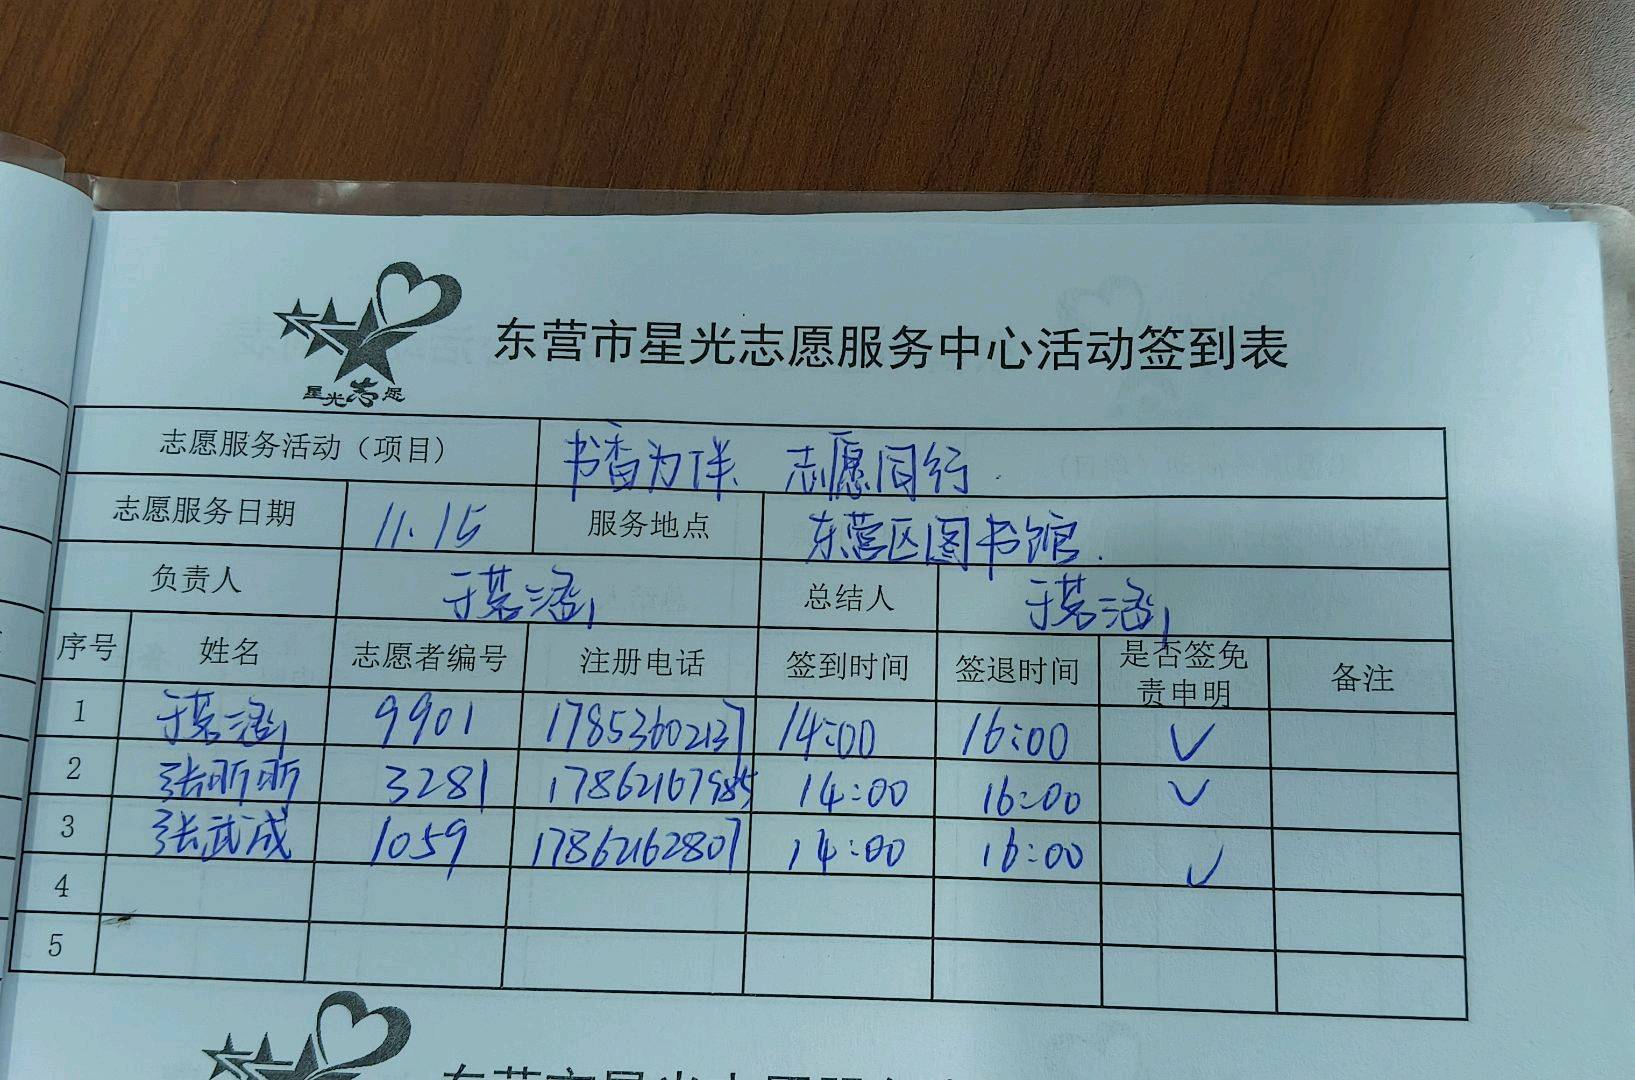 星光志愿
东营市星光志愿服务中心活动签到表
志愿服务活动（项目） 书香为伴、志愿同行.
志愿服务日期 11.15 服务地点 东营区图书馆.
负责人 于茗涵 总结人 于茗涵
序号 姓名 志愿者编号 注册电话 签到时间 签退时间 是否签免责申明 备注
1 于茗涵 9901 17853602137 14:00 16:00 ✓
2 张昕昕 3281 17862167985 14:00 16:00 ✓
3 张武成 1059 17862162807 14:00 16:00 ✓
4
5